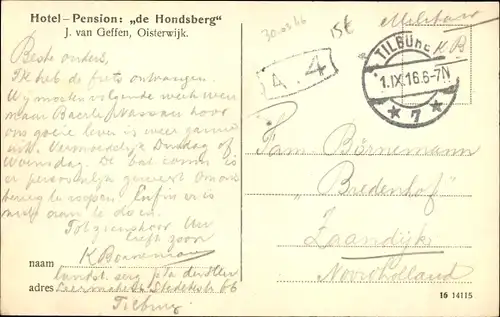 Hotel-Pension: „de Hondsberg"
J. van Geffen, Oisterwijk.
Beste ouders,
Ik heb de fiets ontvangen.
Wij moeten volgende week weer
naar Baarle Nassau hoor
ons goeie leven is weer gauw
uit. Vermoedelijk Dinsdag of
Woensdag. De bat. comm. is
er persoonlijk geweest om ons
terug te roepen. Enfin er is
niets aan te doen.
Tot ziens hoor Uw
liefh. zoon
K Bornemann
naam
adres
66
Tilburg
30.03.66
15€
A. 4
Militair
KB
TILBURG
1.IX.16.6-7N
7
Fam. Börnemann
"Bredenhof"
Zaandijk
Noordholland
16 14115